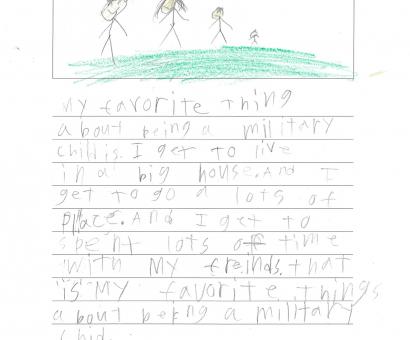 My favorite thing
about being a military
child is. I get to live
in a big house. And I
get to go a lots of
place. And I get to
spent lots of time
with My freinds. that
is My favorite things
about being a military
chid.